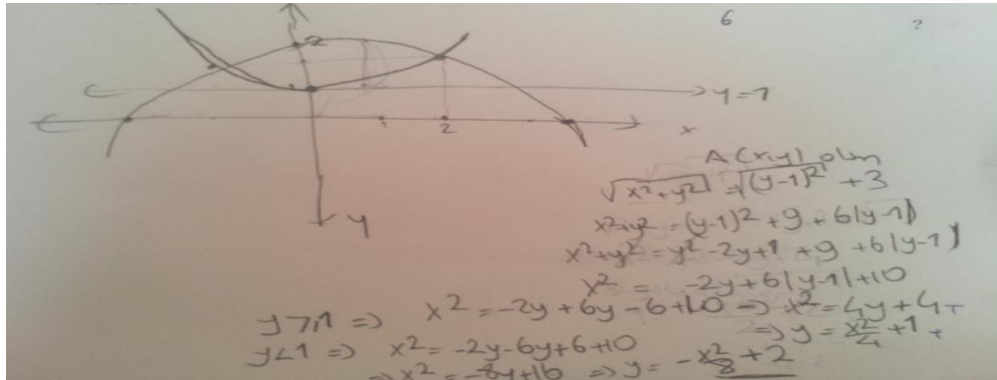 6 ?
2
y=1
1 2 x
y
A(x,y) olsn
√x²+y² = √(y-1)² +3
x²+y² = (y-1)² +9 + 6|y-1|
x²+y² = y² -2y+1 +9 +6|y-1|
x² = -2y+6|y-1|+10
y≥1 => x² = -2y + 6y -6+10 => x² = 4y+4
=> y = x²/4 +1
y<1 => x² = -2y-6y+6+10
=> x² = -8y+16 => y = -x²/8 +2